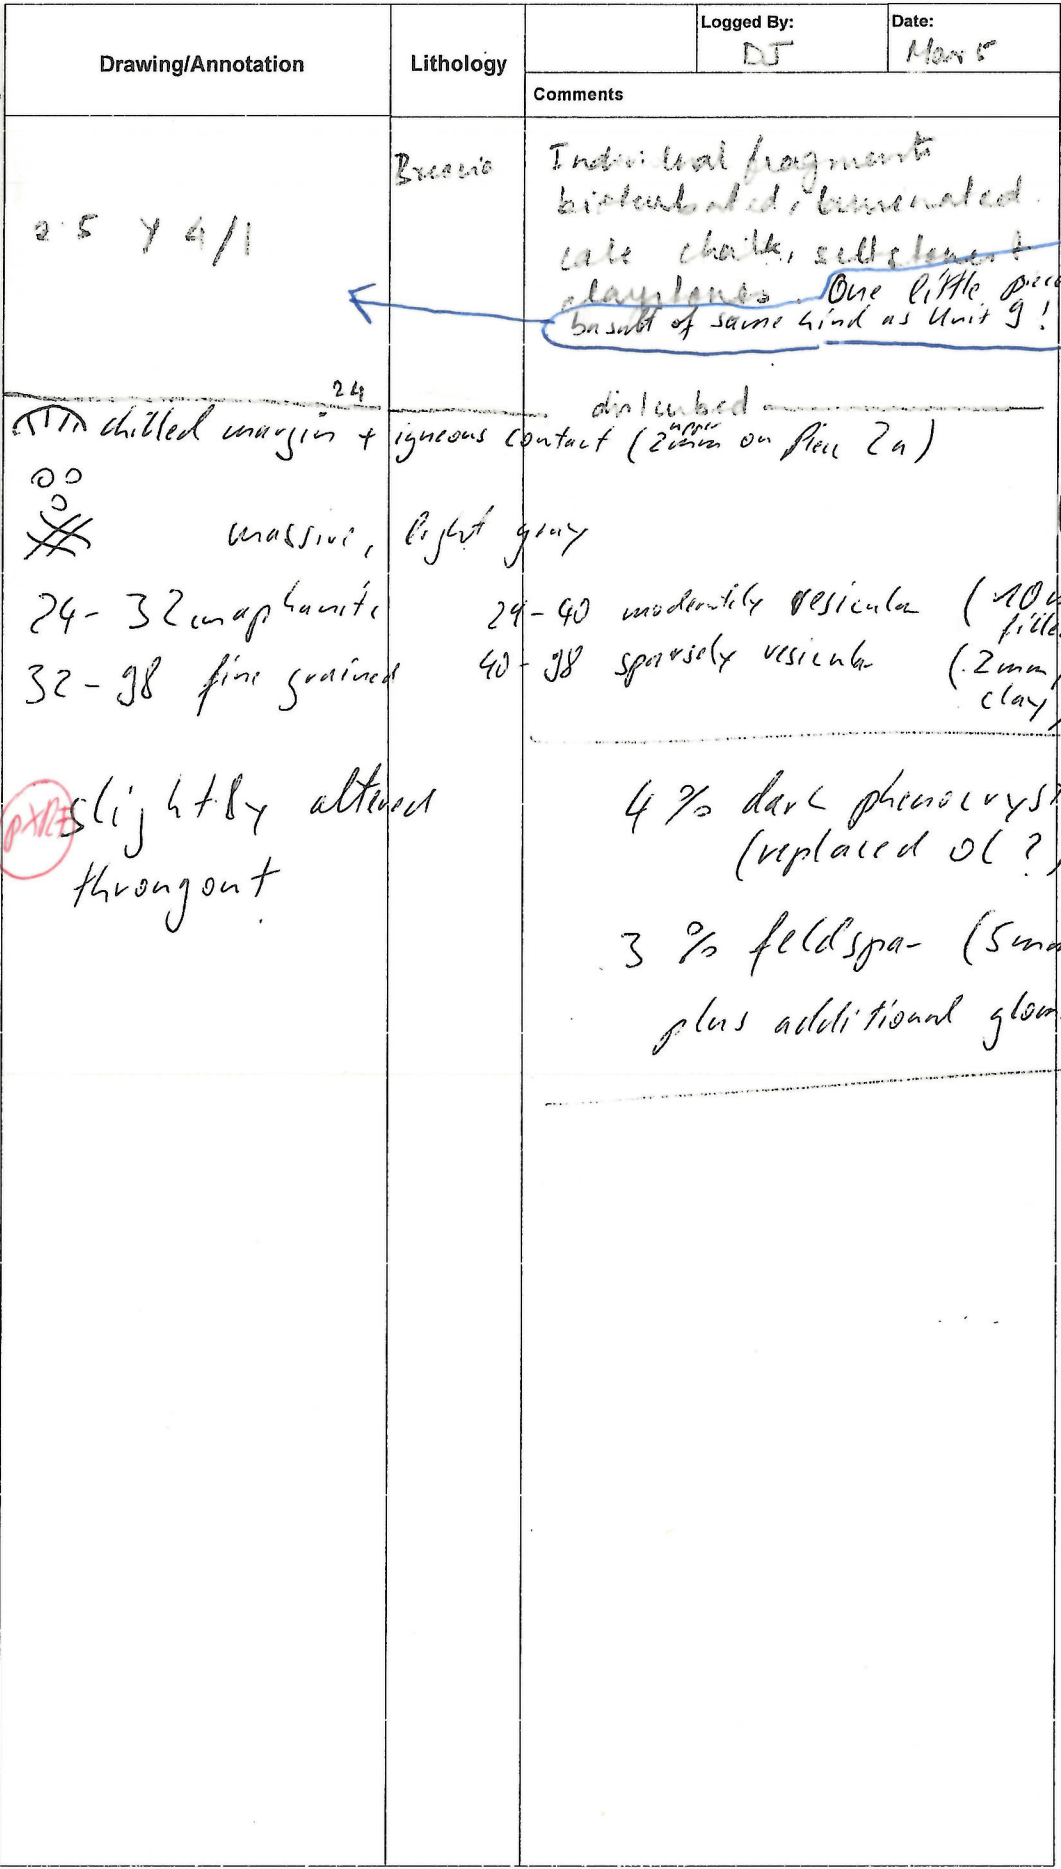 Drawing/Annotation
Lithology
Logged By:
DJ
Date:
Mar 5
Comments
Breccia
2.5 Y 4/1
Individual fragments
bioturbated, laminated
calc chalk, siltstones +
claystones. One little piece
basalt of same kind as Unit 9!
24
disturbed
chilled margin + igneous contact (2mm upper on Piece 2a)
massive, light gray
24-32 cm aphanitic
24-40 moderately vesicular (10
fille
32-98 fine grained
40-98 sparsely vesicular (.2mm,
clay)
pXRF
slightly altered
throngout
4 % dark phenocryst
(replaced ol?)
3 % feldspar (5mm
plus additional glom